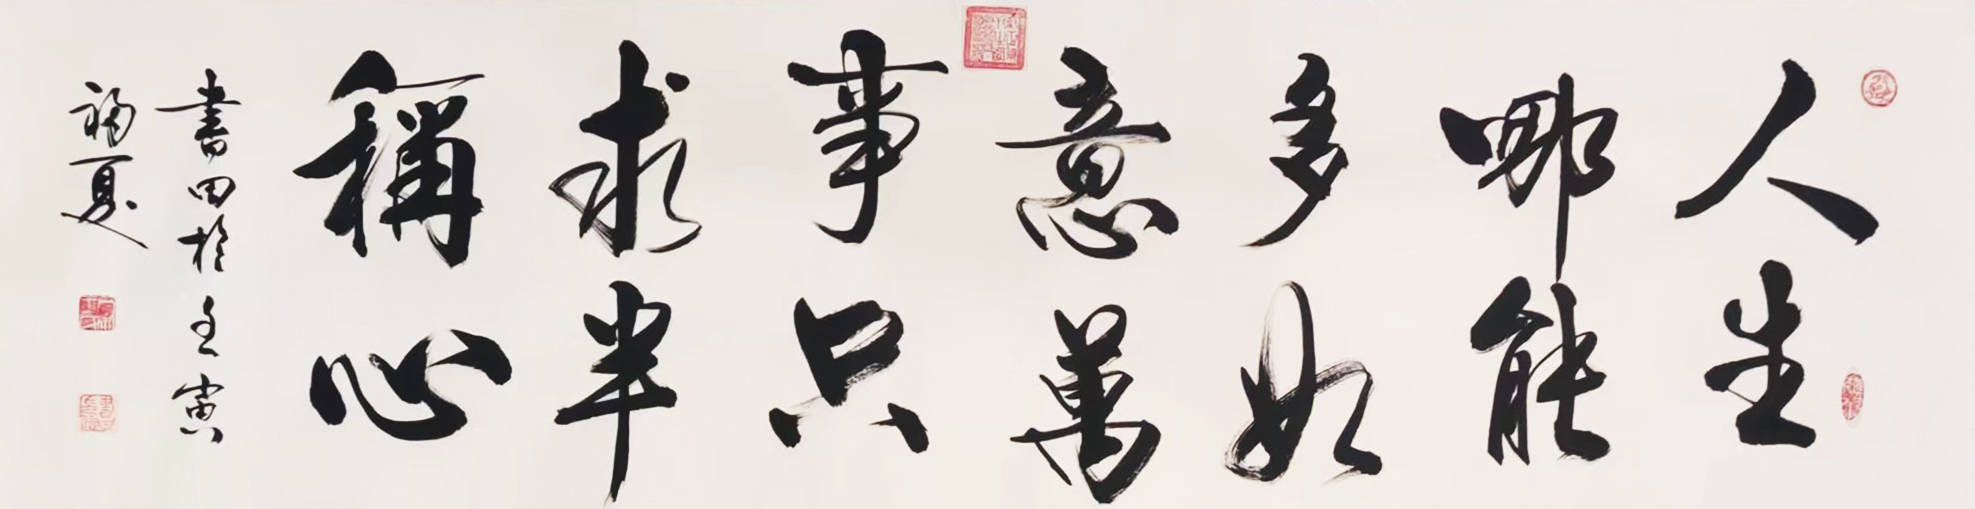 人生
哪能
多如
意萬
事只
求半
稱心
書田於壬寅
福夏